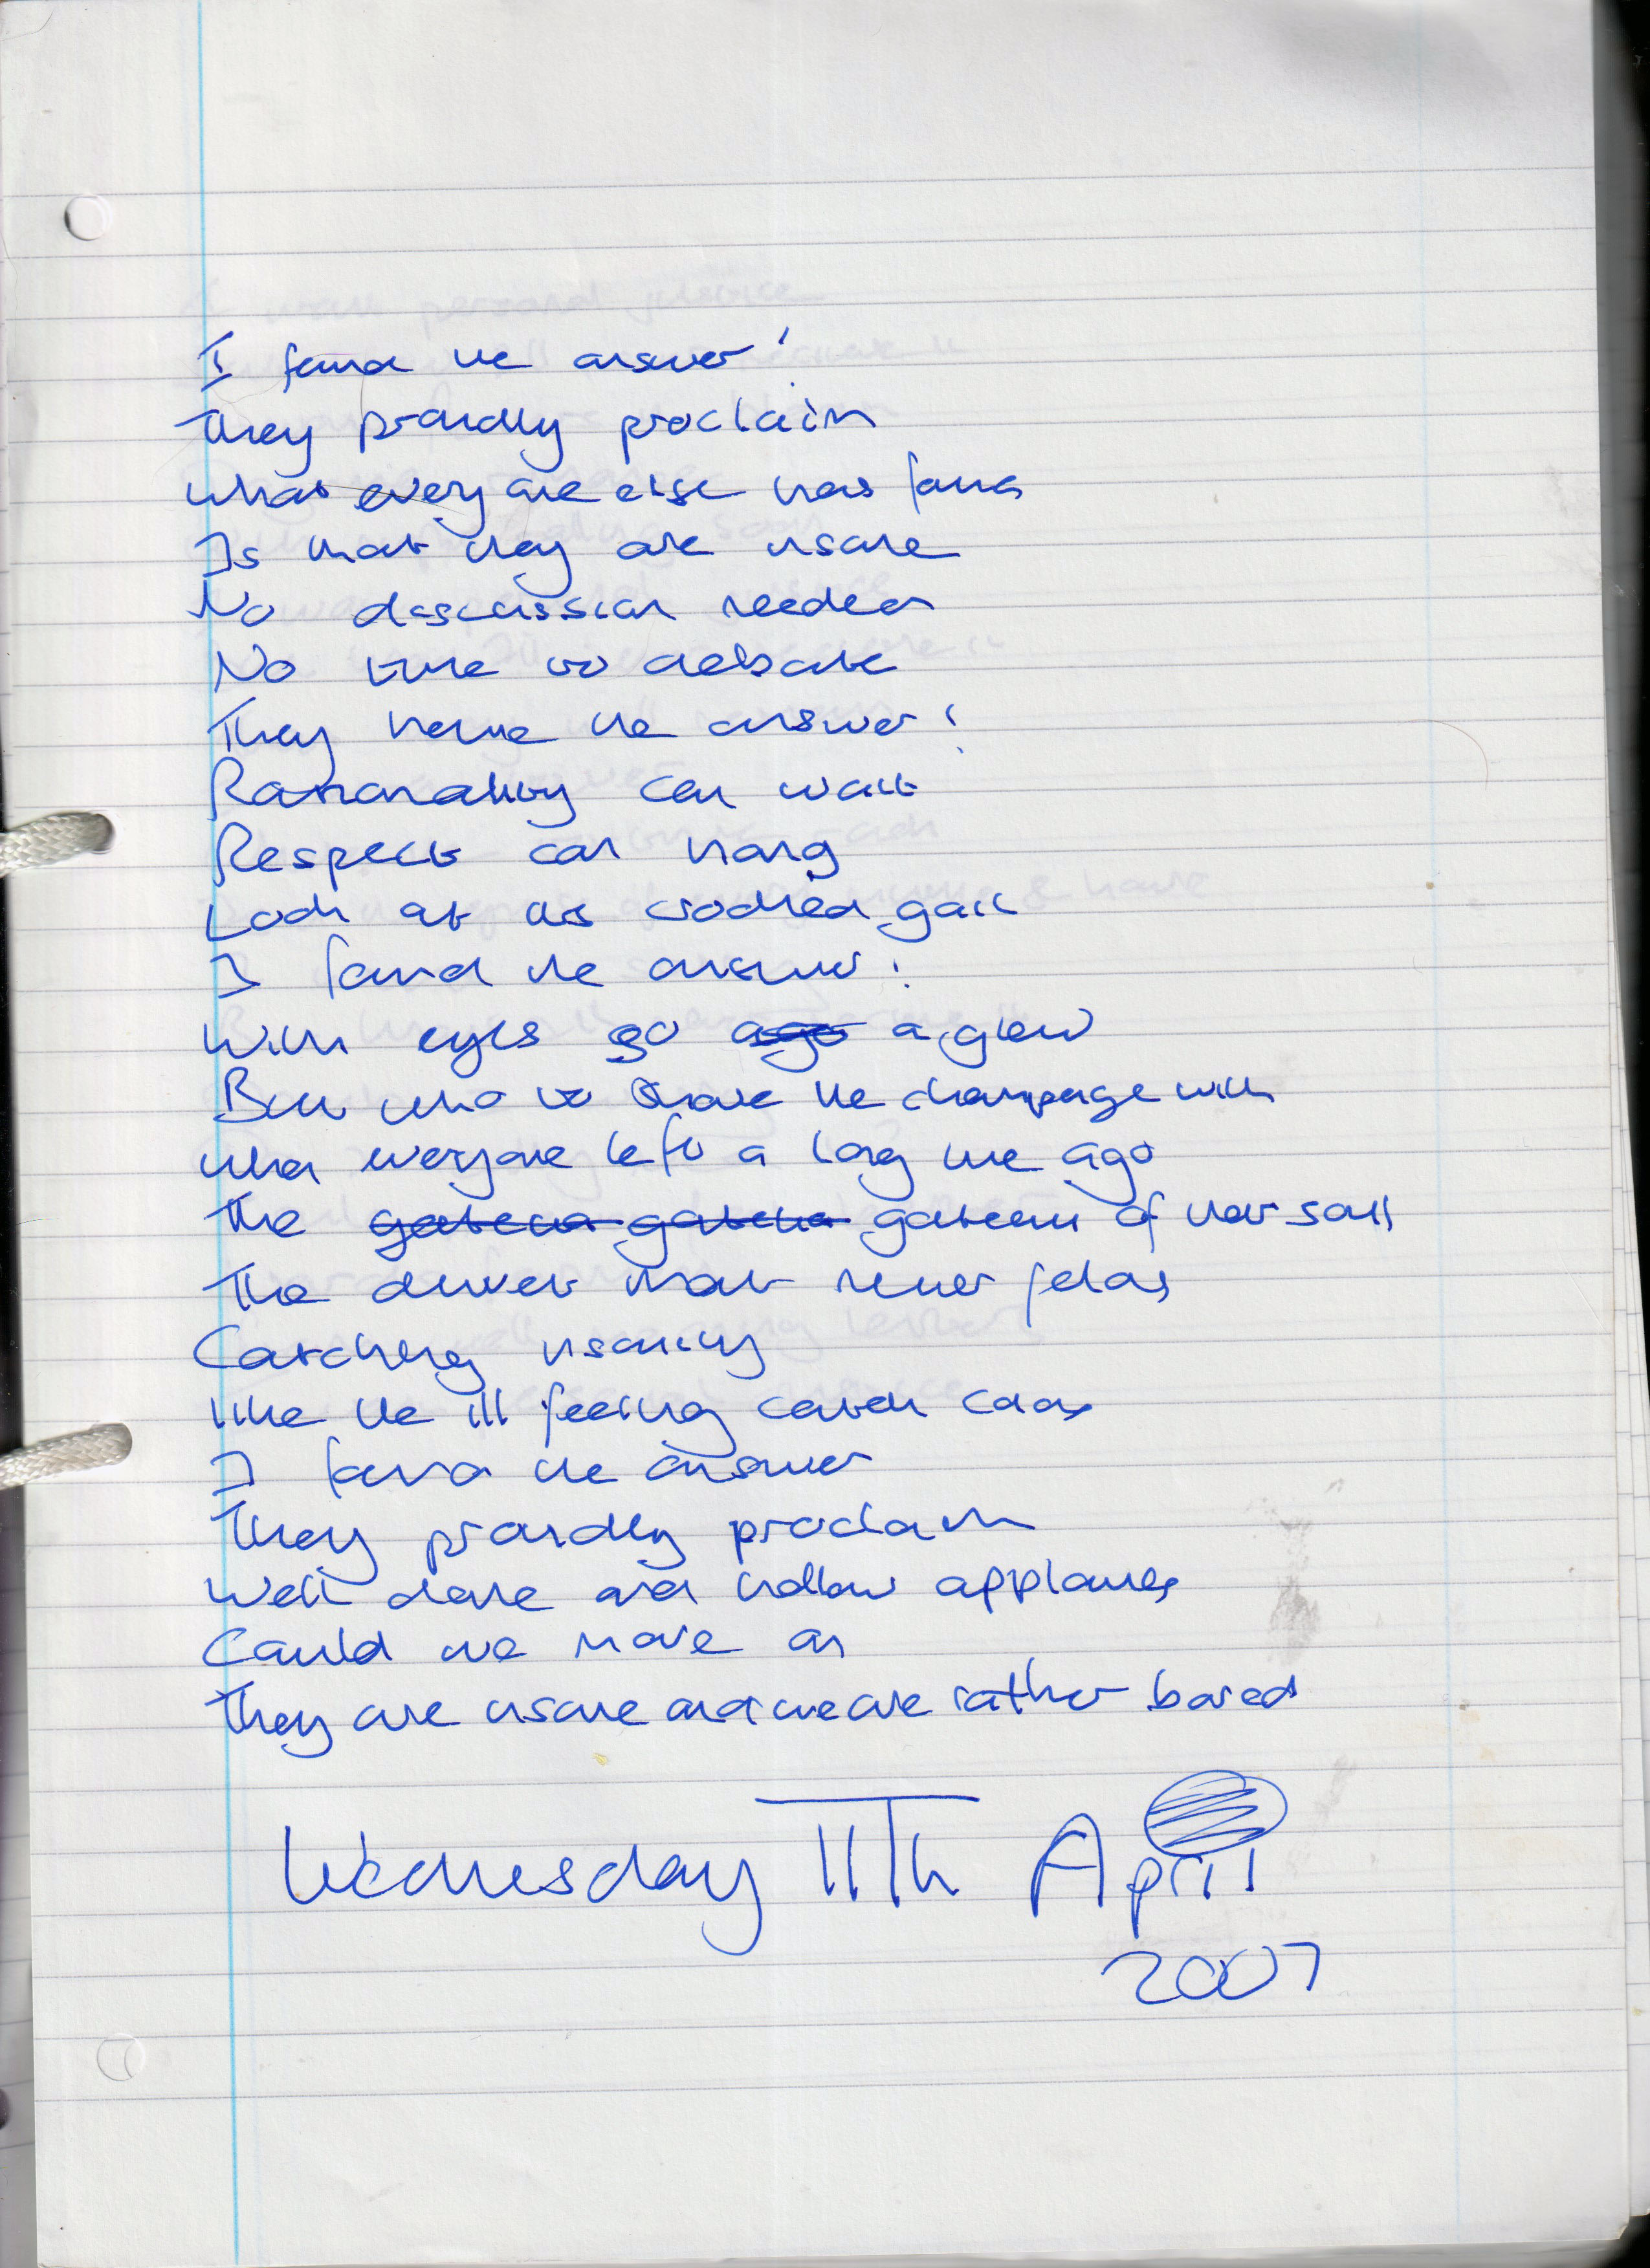 I found the answer!
They proudly proclaim
What every one else has found
Is that they are insane
No discussion needed
No time to debate
They have the answer!
Rationality can wait
Respect can hang
Look at its crooked gait
I found the answer!
With eyes so ago a glow
But who to share the champage with
When everyone left a long time ago
The of their soul
The that never folds
Catching insanity
like the ill feeling catch colds
I found the answer
They proudly proclaim
Well done and hollow applause
Could we move on
They are insane and we are rather bored
Wednesday 11Th April
2007